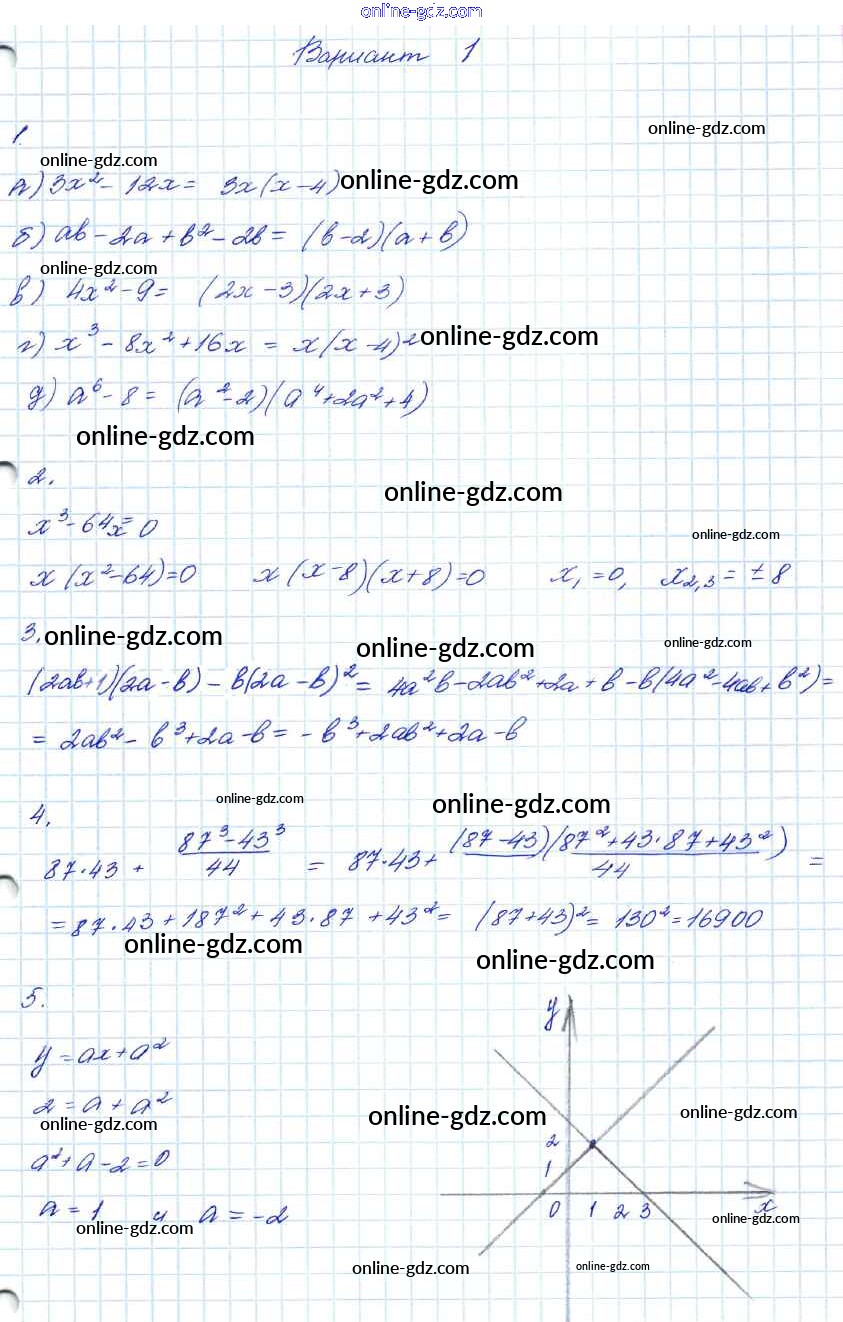 online-gdz.com
Вариант 1
online-gdz.com
1.
online-gdz.com
а) 3x² - 12x = 3x(x-4) online-gdz.com
б) ab - 2a + b² - 2b = (b-2)(a+b)
online-gdz.com
в) 4x² - 9 = (2x-3)(2x+3)
г) x³ - 8x² + 16x = x(x-4)² online-gdz.com
д) a⁶ - 8 = (a² - 2)(a⁴ + 2a² + 4)
online-gdz.com
2.
online-gdz.com
x³ - 64x = 0
online-gdz.com
x(x² - 64) = 0 x(x-8)(x+8) = 0 x₁ = 0, x₂,₃ = ± 8
3. online-gdz.com
online-gdz.com
online-gdz.com
(2ab+1)(2a-b) - b(2a-b)² = 4a²b - 2ab² + 2a + b - b(4a² - 4ab + b²) =
= 2ab² - b³ + 2a - b = - b³ + 2ab² + 2a - b
online-gdz.com
online-gdz.com
4.
87·43 + (87³ - 43³)/44 = 87·43 + (87-43)(87² + 43·87 + 43²)/44 =
= 87·43 + 187² + 43·87 + 43² = (87+43)² = 130² = 16900
online-gdz.com
online-gdz.com
5.
y
y = ax + a²
2 = a + a²
online-gdz.com
online-gdz.com
online-gdz.com
2
a² + a - 2 = 0
1
a = 1 и a = -2
0 1 2 3 x
online-gdz.com
online-gdz.com
online-gdz.com
online-gdz.com